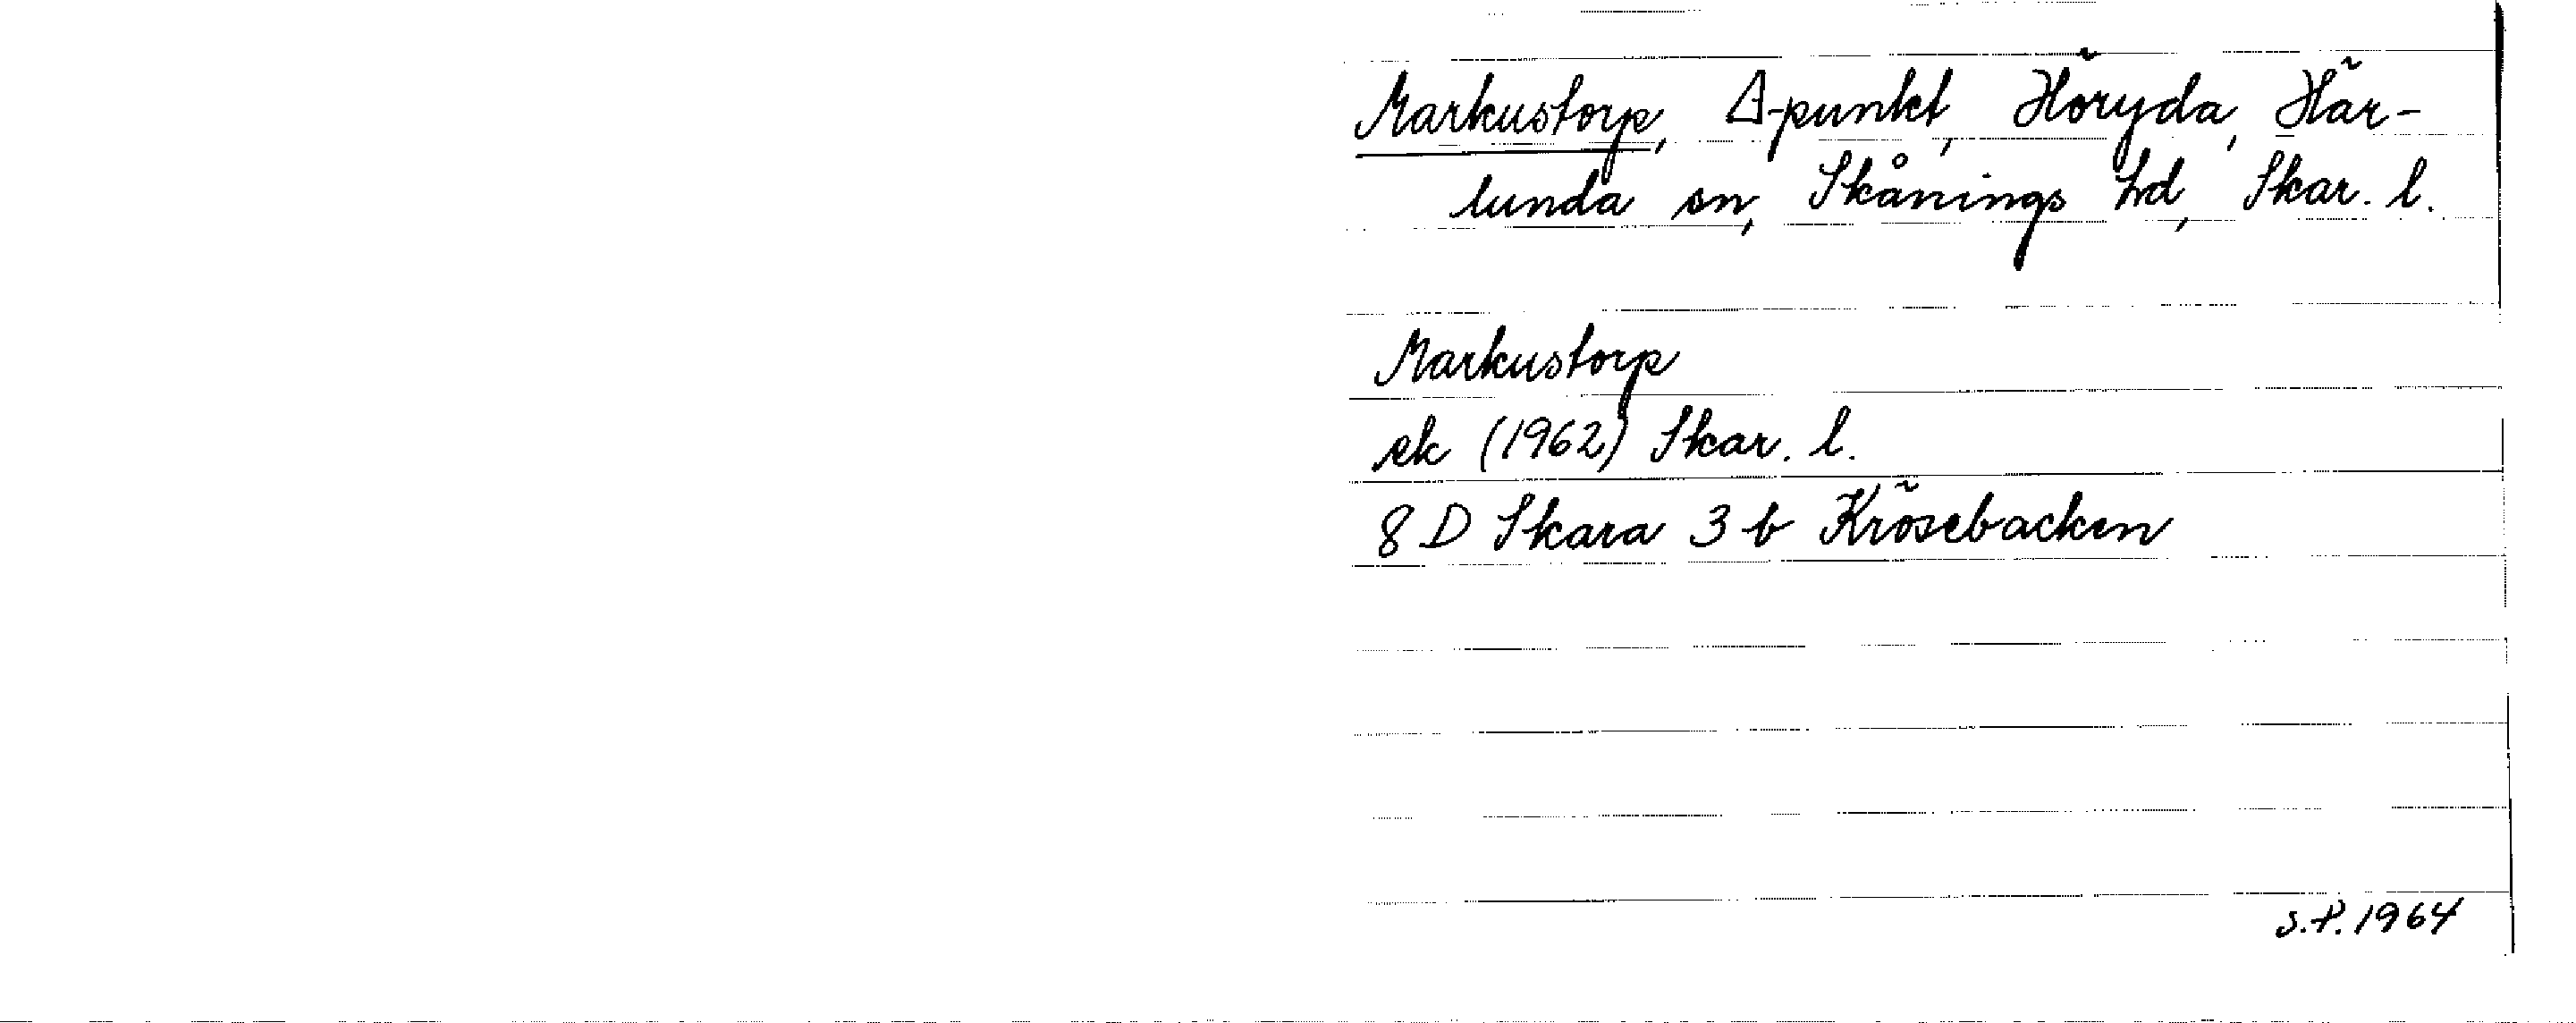 Markustorp, Δ-punkt, Höryda, Här-
lunda sn, Skånings hd, Skar. l.
Markustorp
ek (1962) Skar. l.
8 D Skara 3 b Krösebacken
S.P. 1964